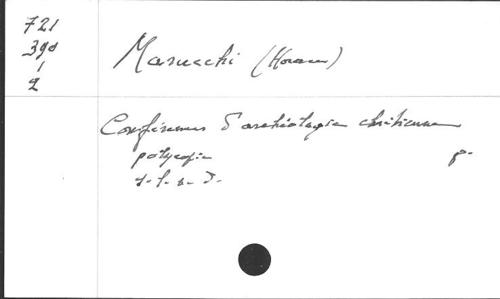 721
390
1
2
Marucchi (Horace)
Conférences d'archéologie chrétienne
polycopie p.
s. l. n. d.